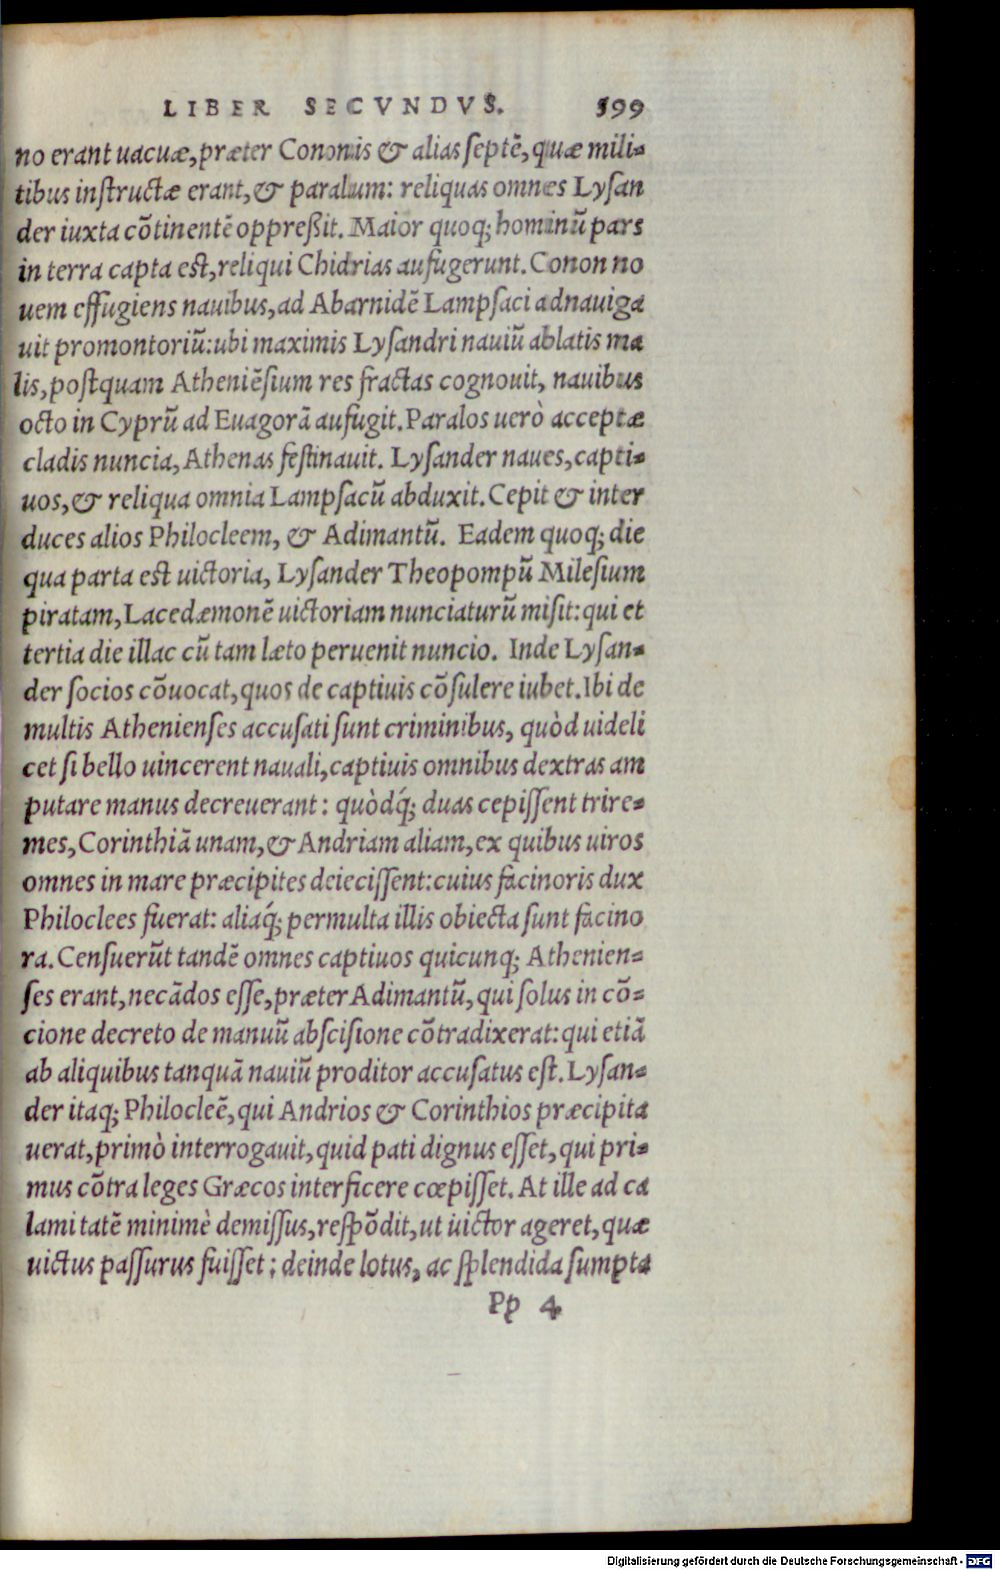 LIBER SECVNDVS. 599
no erant uacuæ, præter Cononis & alias septē, quæ mili-
tibus instructæ erant, & paralum: reliquas omnes Lysan
der iuxta cōtinentē oppreßit. Maior quoq; hominū pars
in terra capta est, reliqui Chidrias aufugerunt. Conon no
uem effugiens nauibus, ad Abarnidē Lampsaci adnauiga
uit promontoriū: ubi maximis Lysandri nauiū ablatis ma
lis, postquam Atheniēsium res fractas cognouit, nauibus
octo in Cyprū ad Euagorā aufugit. Paralos uerò acceptæ
cladis nuncia, Athenas festinauit. Lysander naues, capti-
uos, & reliqua omnia Lampsacū abduxit. Cepit & inter
duces alios Philocleem, & Adimantū. Eadem quoq; die
qua parta est uictoria, Lysander Theopompū Milesium
piratam, Lacedæmonē uictoriam nunciaturū misit: qui et
tertia die illac cū tam læto peruenit nuncio. Inde Lysan-
der socios cōuocat, quos de captiuis cōsulere iubet. Ibi de
multis Athenienses accusati sunt criminibus, quòd uideli
cet si bello uincerent nauali, captiuis omnibus dextras am
putare manus decreuerant: quòdq́; duas cepissent trire-
mes, Corinthiā unam, & Andriam aliam, ex quibus uiros
omnes in mare præcipites deiecissent: cuius facinoris dux
Philoclees fuerat: aliaq́; permulta illis obiecta sunt facino
ra. Censuerūt tandē omnes captiuos quicunq; Athenien-
ses erant, necādos esse, præter Adimantū, qui solus in cō-
cione decreto de manuū abscisione cōtradixerat: qui etiā
ab aliquibus tanquā nauiū proditor accusatus est. Lysan-
der itaq; Philocleē, qui Andrios & Corinthios præcipita
uerat, primò interrogauit, quid pati dignus esset, qui pri-
mus cōtra leges Græcos interficere cœpisset. At ille ad ca
lamitatē minimè demissus, respōdit, ut uictor ageret, quæ
uictus passurus fuisset: deinde lotus, ac splendida sumpta
Pp 4
Digitalisierung gefördert durch die Deutsche Forschungsgemeinschaft - DFG